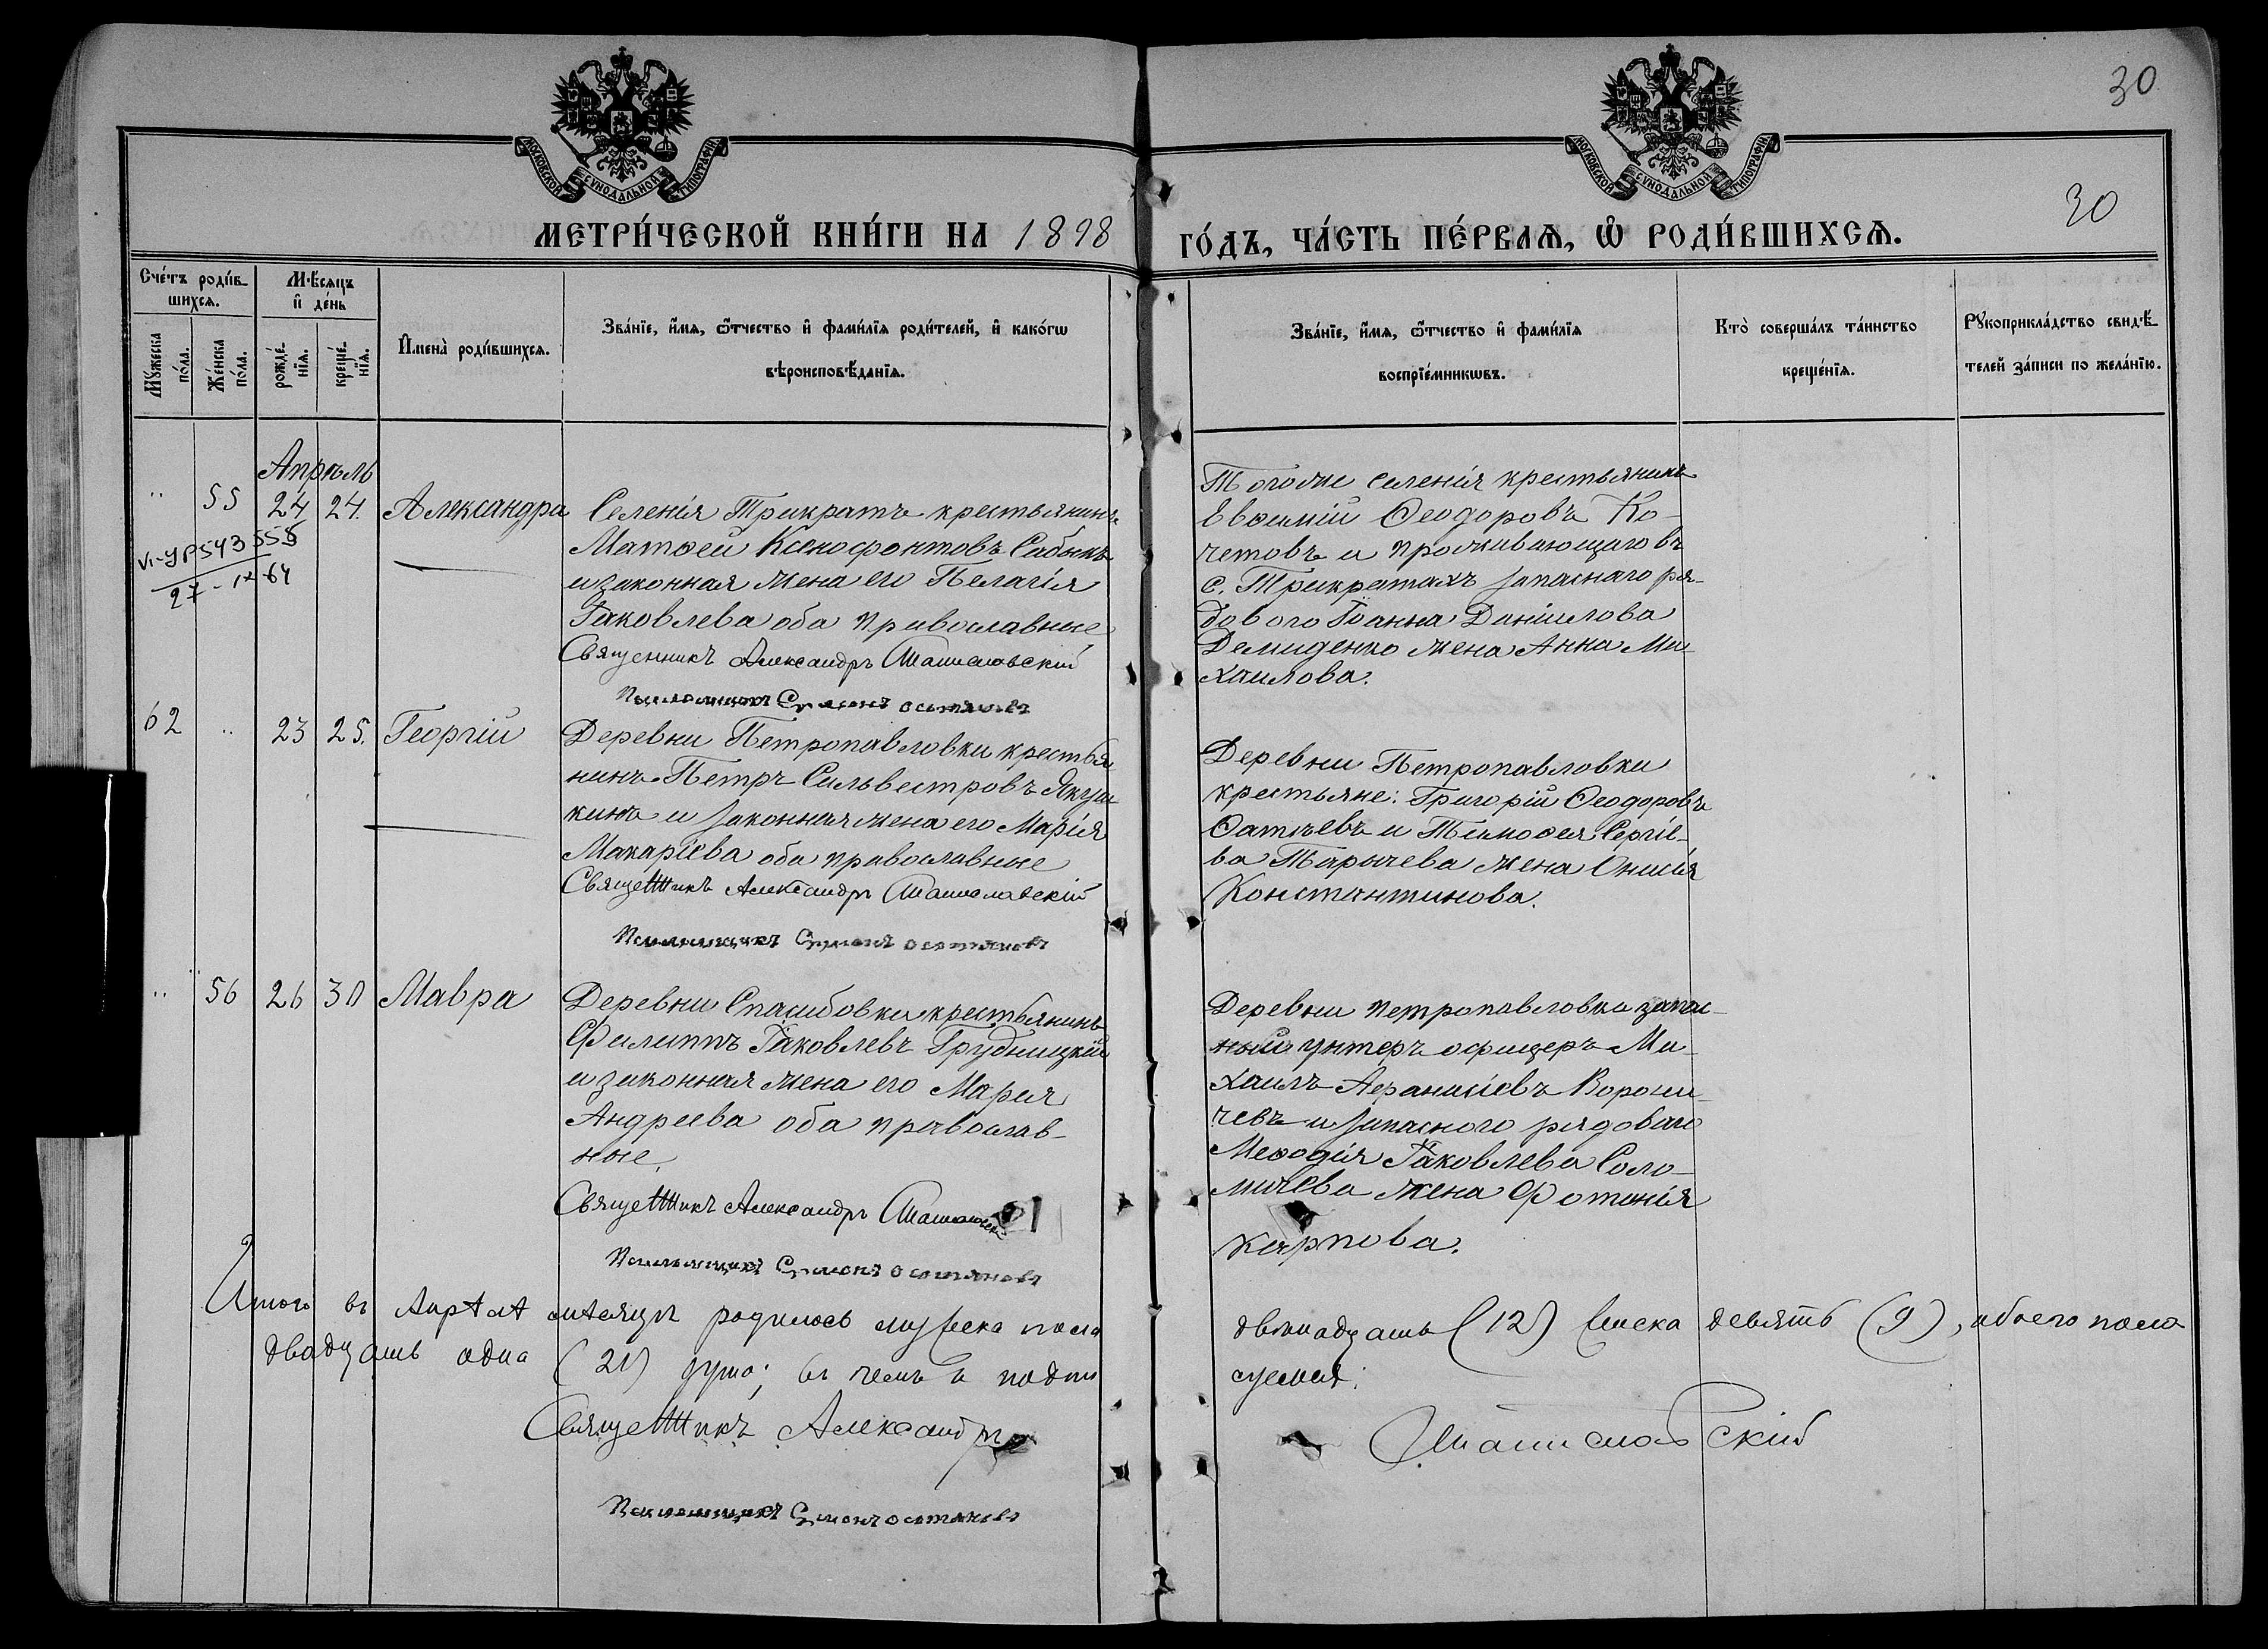 30
МОСКОВСКОЙ СѴНОДАЛЬНОЙ ТИПОГРАФІИ
МОСКОВСКОЙ СѴНОДАЛЬНОЙ ТИПОГРАФІИ
30
МЕТРИ́ЧЕСКОЙ КНИ́ГИ НА 1898
ГО́ДЪ, ЧА́СТЬ ПЕ́РВАѦ, Ѡ҆ РОДИ́ВШИХСѦ.
Сче́тъ роди́в-
шихсѧ.
Мꙋ́жеска по́ла.
Же́нска по́ла.
Мѣ́сѧцъ
и҆ де́нь
рожде́-
нїѧ.
креще́-
нїѧ.
И҆мена̀ роди́вшихсѧ.
Зва́нїе, и҆́мѧ, ѻ҆́тчество и҆ фами́лїѧ роди́телей, и҆ како́гѡ
вѣроисповѣ́данїѧ.
Зва́нїе, и҆́мѧ, ѻ҆́тчество и҆ фами́лїѧ
воспрїе́мникѡвъ.
Кто̀ соверша́лъ та́инство
креще́нїѧ.
Рꙋкоприкла́дство свидѣ́-
телей за́писи по жела́нїю.
Апрѣль
" 55 24 24. Александра
VI-УР 543555
27-IX-64
Селенія Трикратъ крестьянинъ
Матѳей Ксенофонтовъ Сабыкъ
и законная жена его Пелагія
Іаковлева оба православные
Священникъ Александръ
Псаломщикъ Сумонъ
Тогоже селенія крестьянинъ
Евѳимій Ѳеодоровъ Ко-
четовъ и проживающаго въ
с. Трикратахъ запаснаго ря-
доваго Іоанна Даніилова
Демиденко жена Анна Ми-
хаилова.
62 " 23 25. Георгій
Деревни Петропавловки крестья
нинъ Петръ Сильвестровъ Якуш
кинъ и законная жена его Марія
Макаріева оба православные
Священникъ Александръ
Псаломщикъ Сумонъ
Деревни Петропавловки
крестьяне: Григорій Ѳеодоровъ
и Тимоѳея Сергіе-
ва жена Онисія
Константинова.
" 56 26 30 Мавра
Деревни Спасибовки крестьянинъ
Филиппъ Іаковлевъ Грудницкій
и законная жена его Марія
Андреева оба православ-
ные.
Священникъ Александръ
Псаломщикъ Сумонъ
Деревни Петропавловки запас-
ный унтеръ офицеръ Ми-
хаилъ Аѳанасіевъ Ворони-
чевъ и запасного рядоваго
Меѳодія Іаковлева Соло-
мичева жена Фотинія
Карпова.
Итого въ Апрѣлѣ мѣсяцѣ родилось мужеска пола
двѣнадцать (12) женска девять (9), обоего пола
двадцать одна (21) душа; въ чемъ и подпи
суемся:
Священникъ Александръ
Псаломщикъ Сумонъ